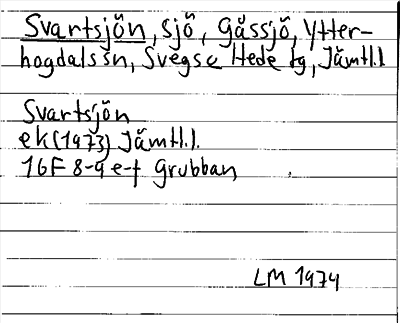 Svartsjön, sjö, Gåssjö, Ytter-
hogdals sn, Svegs o Hede tg, Jämtl.l
Svartsjön
ek (1973) Jämtl.l.
16F 8-9 e-f Grubban
LM 1974